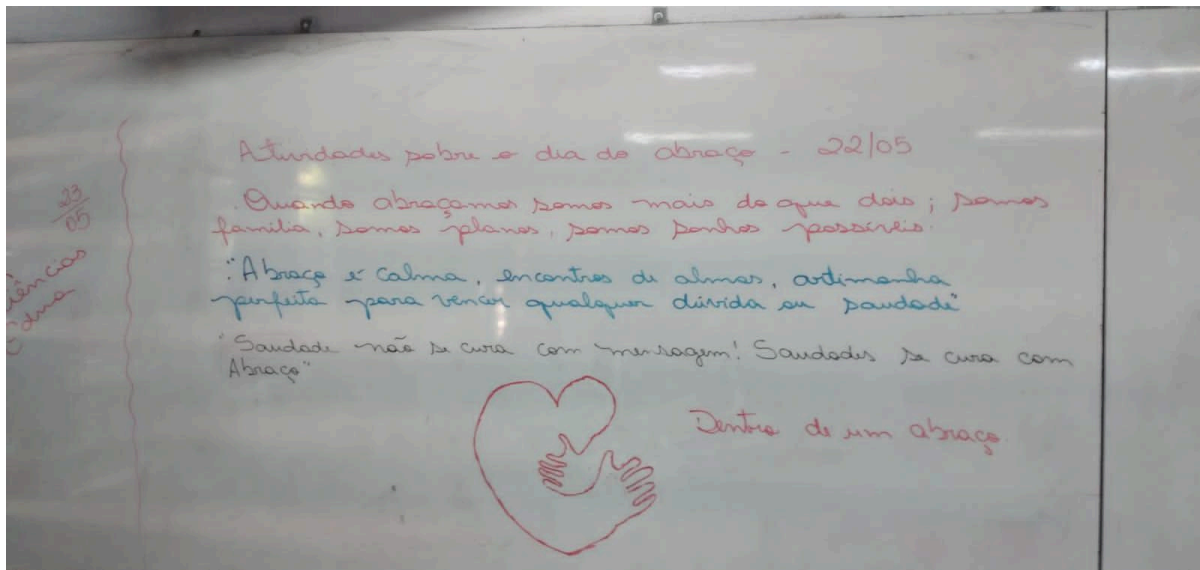 23/05
Atividades sobre o dia do abraço - 22/05
Quando abraçamos somos mais do que dois; somos
família, somos planos, somos sonhos possíveis.
"Abraço é calma, encontros de almas, artimanha
perfeita para vencer qualquer dúvida ou saudade"
"Saudade não se cura com mensagem! Saudades se cura com
Abraço"
Dentro de um abraço.